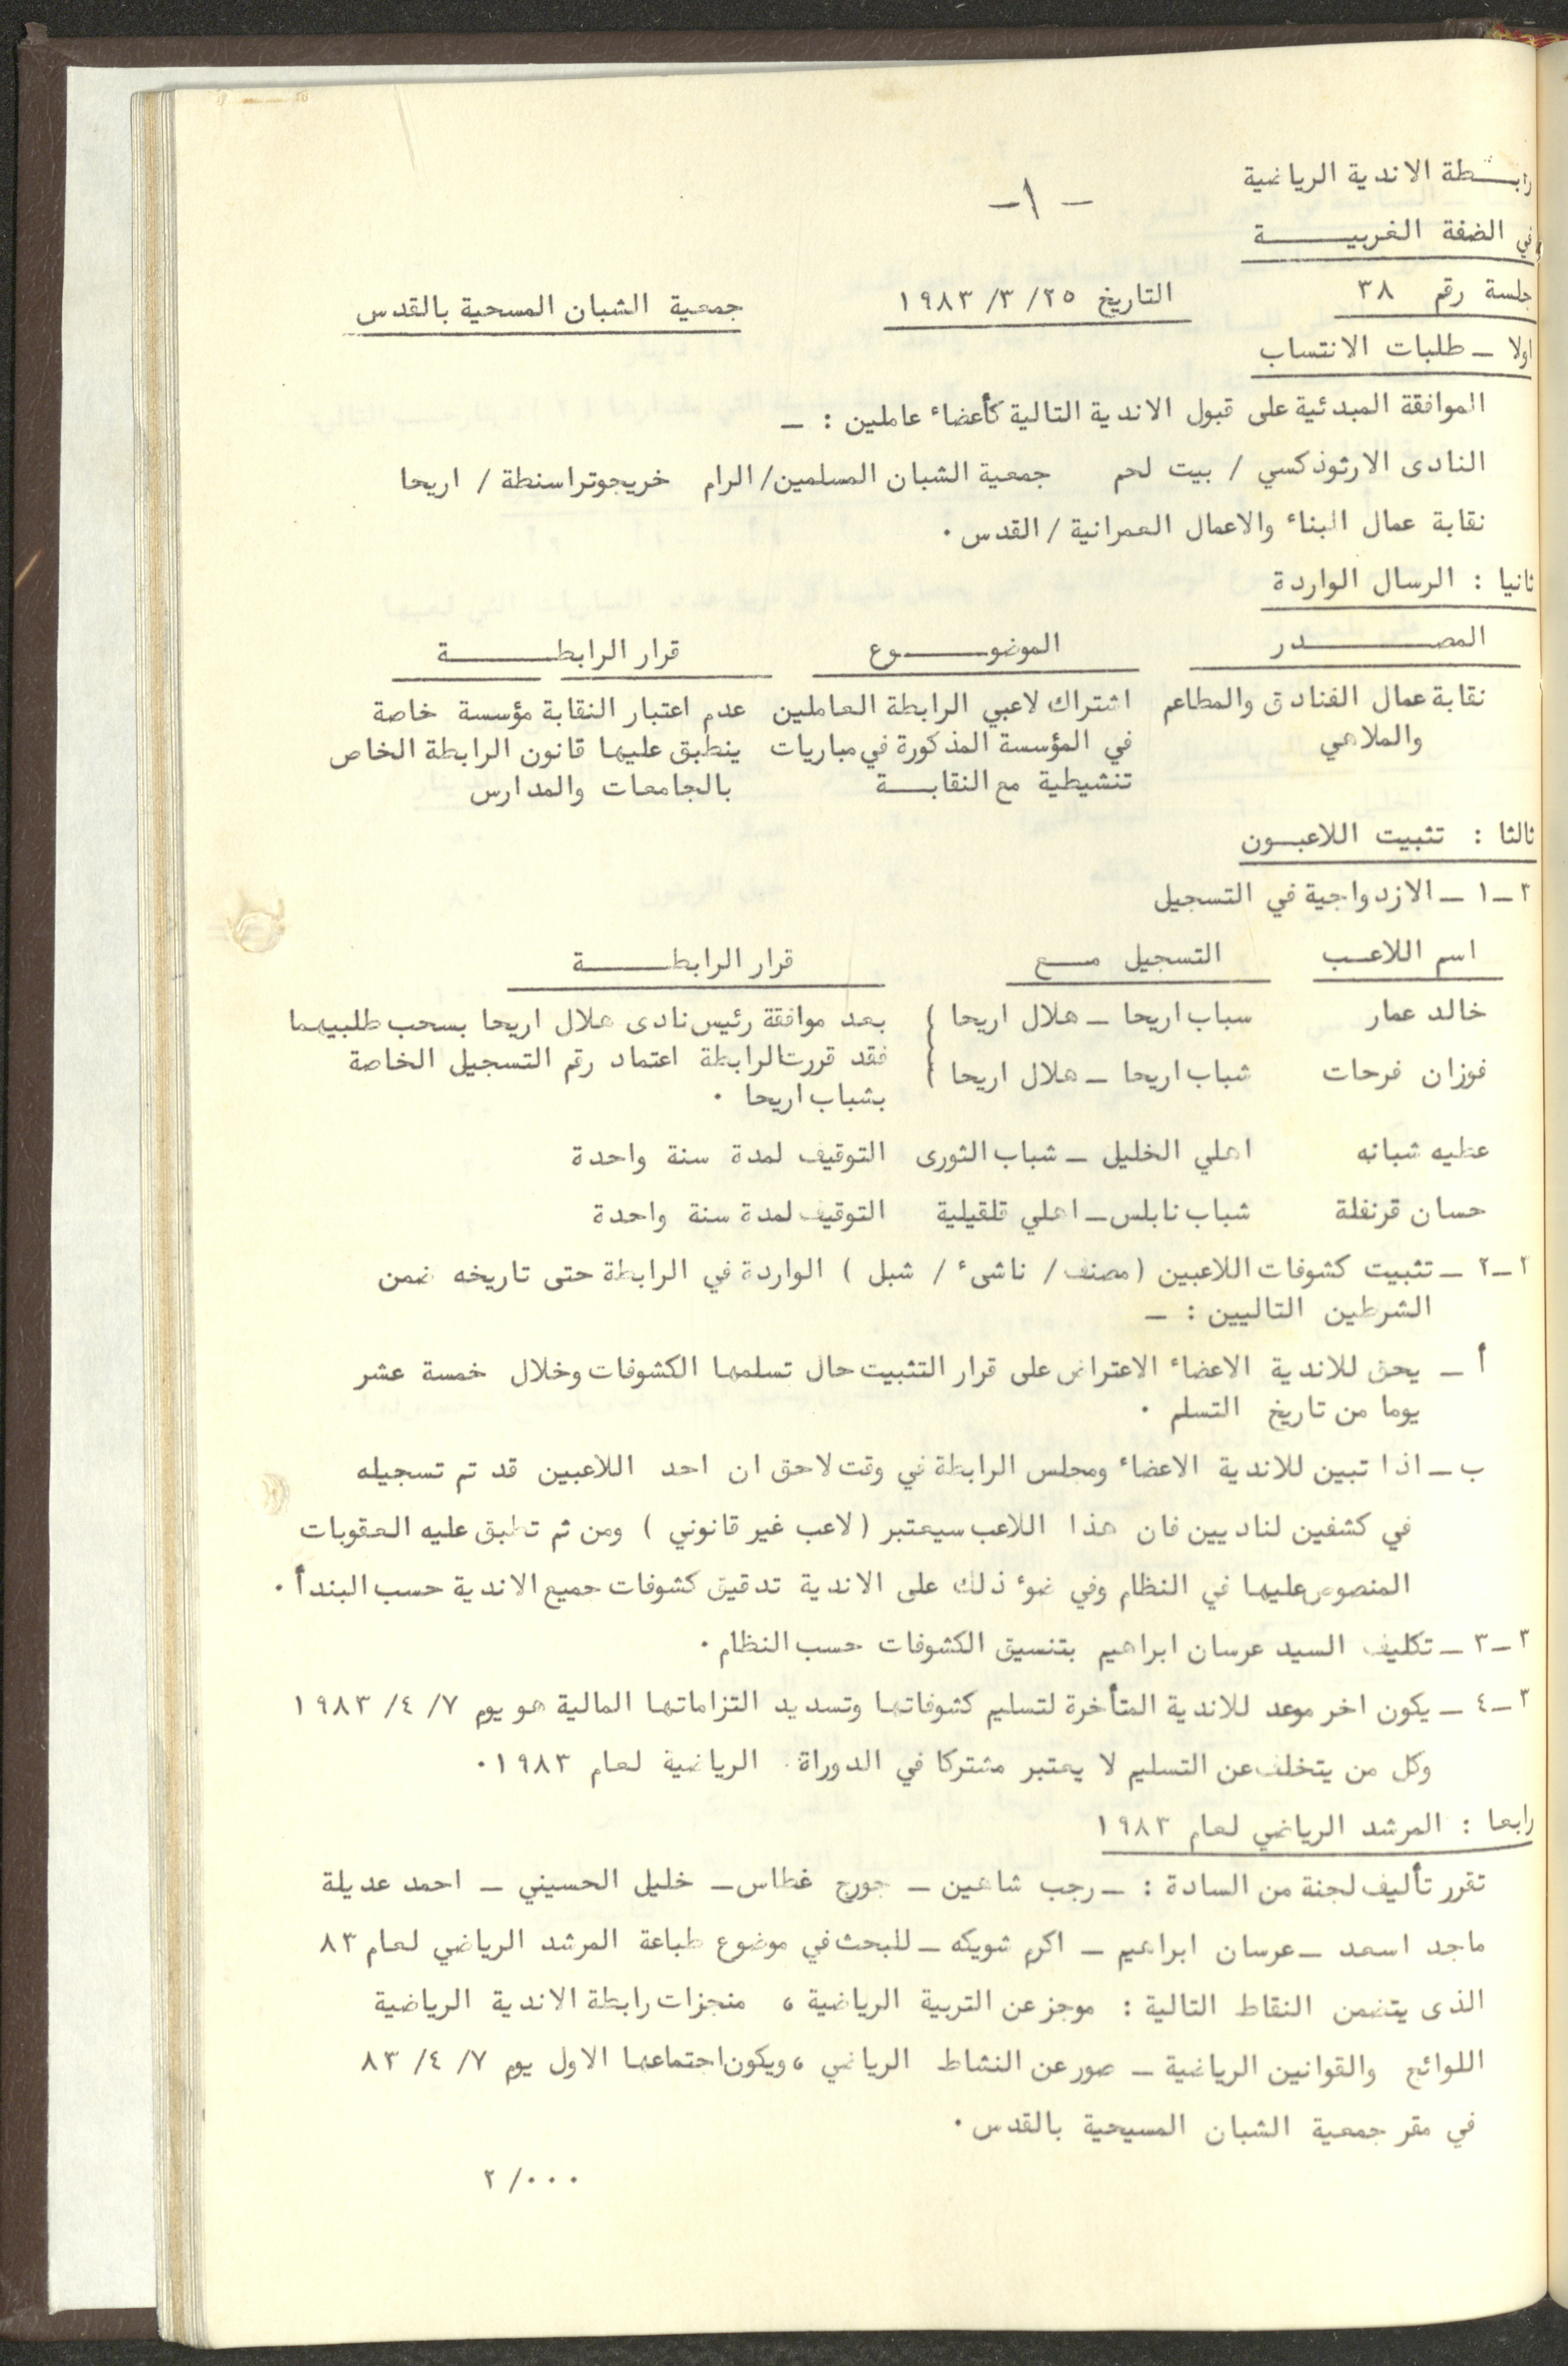 رابطة الاندية الرياضية
-١-
في الضفة الغربية
جلسة رقم ٣٨ التاريخ ٢٥/ ٣/ ١٩٨٣ جمعية الشبان المسحية بالقدس
اولا - طلبات الانتساب
الموافقة المبدئية على قبول الاندية التالية كأعضاء عاملين : -
النادى الارثوذكسي / بيت لحم جمعية الشبان المسلمين/ الرام خريجوتراسنطة / اريحا
نقابة عمال البناء والاعمال العمرانية / القدس .
ثانيا : الرسال الواردة
المصدر الموضوع قرار الرابطة
نقابة عمال الفنادق والمطاعم اشتراك لاعبي الرابطة العاملين عدم اعتبار النقابة مؤسسة خاصة
والملاهي في المؤسسة المذكورة في مباريات ينطبق عليها قانون الرابطة الخاص
تنشيطية مع النقابة بالجامعات والمدارس
ثالثا : تثبيت اللاعبون
٣-١ - الازدواجية في التسجيل
اسم اللاعب التسجيل مع قرار الرابطة
خالد عمار سباب اريحا - هلال اريحا ) بعد موافقة رئيس نادى هلال اريحا بسحب طلبيهما
فقد قررت الرابطة اعتماد رقم التسجيل الخاصة
فوزان فرحات شباب اريحا - هلال اريحا )
بشباب اريحا .
عطيه شبانه اهلي الخليل - شباب الثورى التوقيف لمدة سنة واحدة
حسان قرنفلة شباب نابلس - اهلي قلقيلية التوقيف لمدة سنة واحدة
٣-٢ - تثبيت كشوفات اللاعبين (مصنف / ناشىء / شبل ) الواردة في الرابطة حتى تاريخه ضمن
الشرطين التاليين : -
أ - يحق للاندية الاعضاء الاعتراض على قرار التثبيت حال تسلمها الكشوفات وخلال خمسة عشر
يوما من تاريخ التسلم .
ب - اذا تبين للاندية الاعضاء ومجلس الرابطة في وقت لاحق ان احد اللاعبين قد تم تسجيله
في كشفين لناديين فان هذا اللاعب سيعتبر (لاعب غير قانوني ) ومن ثم تطبق عليه العقوبات
المنصوص عليها في النظام وفي ضوء ذلك على الاندية تدقيق كشوفات جميع الاندية حسب البند أ .
٣-٣ - تكليف السيد عرسان ابراهيم بتنسيق الكشوفات حسب النظام .
٣-٤ - يكون اخر موعد للاندية المتأخرة لتسليم كشوفاتها وتسديد التزاماتها المالية هو يوم ٧/ ٤/ ١٩٨٣
وكل من يتخلف عن التسليم لا يعتبر مشتركا في الدوراة الرياضية لعام ١٩٨٣ .
رابعا : المرشد الرياضي لعام ١٩٨٣
تقرر تأليف لجنة من السادة : - رجب شاهين - جورج غطاس - خليل الحسيني - احمد عديلة
ماجد اسعد - عرسان ابراهيم - اكرم شويكه - للبحث في موضوع طباعة المرشد الرياضي لعام ٨٣
الذى يتضمن النقاط التالية : موجز عن التربية الرياضية ، منجزات رابطة الاندية الرياضية
اللوائح والقوانين الرياضية - صور عن النشاط الرياضي ، ويكون اجتماعها الاول يوم ٧/ ٤/ ٨٣
في مقر جمعية الشبان المسيحية بالقدس .
٢/٠٠٠